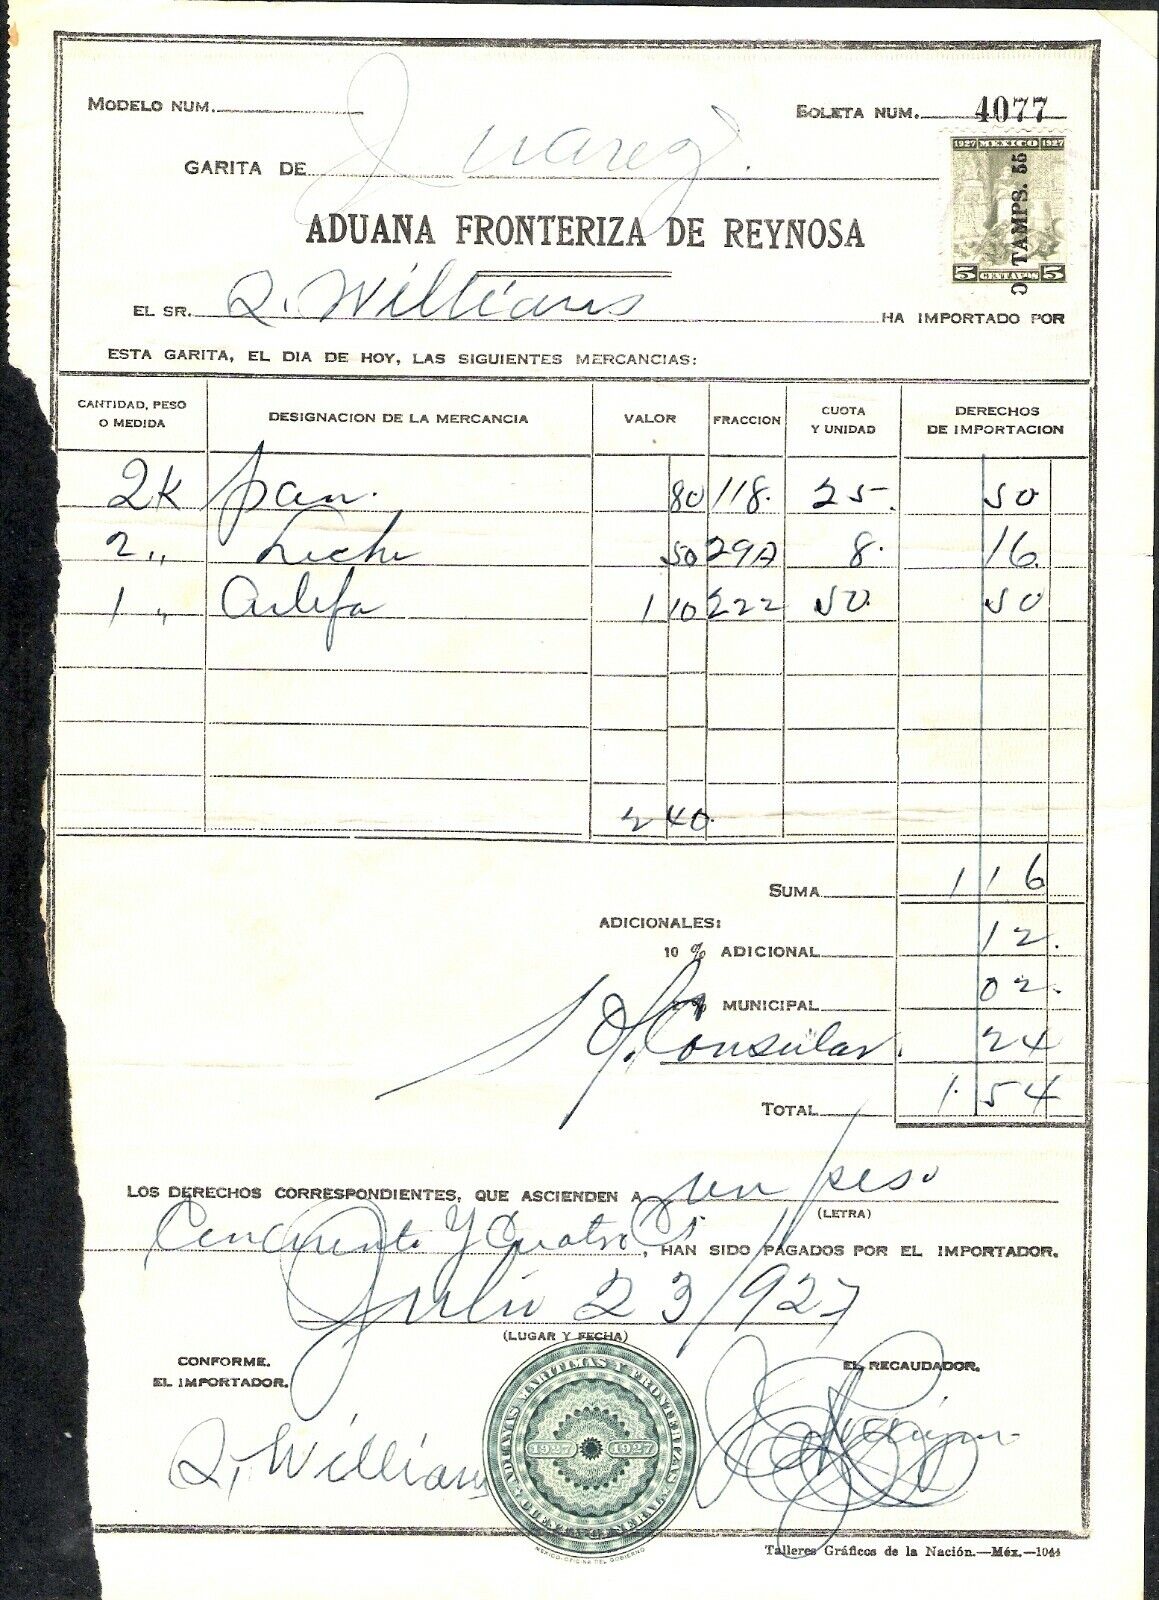 MODELO NUM.
BOLETA NUM. 4077
GARITA DE Juarez.
1927 MEXICO 1927
TAMPS. 55
5 CENTAVOS 5
ADUANA FRONTERIZA DE REYNOSA
EL SR. Q. Williams HA IMPORTADO POR
ESTA GARITA, EL DIA DE HOY, LAS SIGUIENTES MERCANCIAS:
CANTIDAD, PESO O MEDIDA DESIGNACION DE LA MERCANCIA VALOR FRACCION CUOTA Y UNIDAD DERECHOS DE IMPORTACION
2K pan. 80 118. 25. 50
2 " Leche 50 29A 8. 16.
1 " 1 10 222 50. 50
2 40.
SUMA 1 16
ADICIONALES:
10 % ADICIONAL 12.
% MUNICIPAL 02.
Consular. 24
TOTAL 1.54
LOS DERECHOS CORRESPONDIENTES, QUE ASCIENDEN A un peso
(LETRA)
Cincuenta y Cuatro Cs, HAN SIDO PAGADOS POR EL IMPORTADOR.
Julio 23/927
(LUGAR Y FECHA)
CONFORME. EL RECAUDADOR.
EL IMPORTADOR.
Q. Williams
ADUANAS MARITIMAS Y FRONTERIZAS
1927 1927
CUENTA GENERAL
MEXICO-OFICINA DEL GOBIERNO
Talleres Gráficos de la Nación.—Méx.—1044